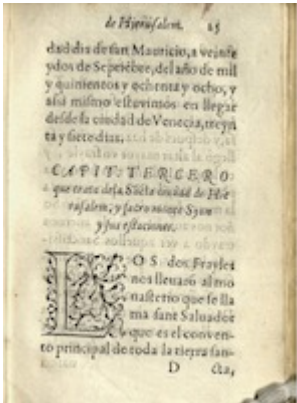 de Hierusalem. 25
dad dia de san Mauricio, a veinte
y dos de Septiẽbre, del año de mil
y quinientos y ochenta y ocho, y
assi mismo estuuimos en llegar
desde la ciudad de Venecia, treyn
ta y siete dias.
CAPIT. TERCERO
que trata de la Sãcta ciudad de Hie
rusalem, y sacro monte Syon
y sus estaciones.
LOS dos Frayles
nos lleuarõ al mo
nasterio que se lla
ma sant Saluador
que es el conuen
to principal de toda la tierra san-
D cta,